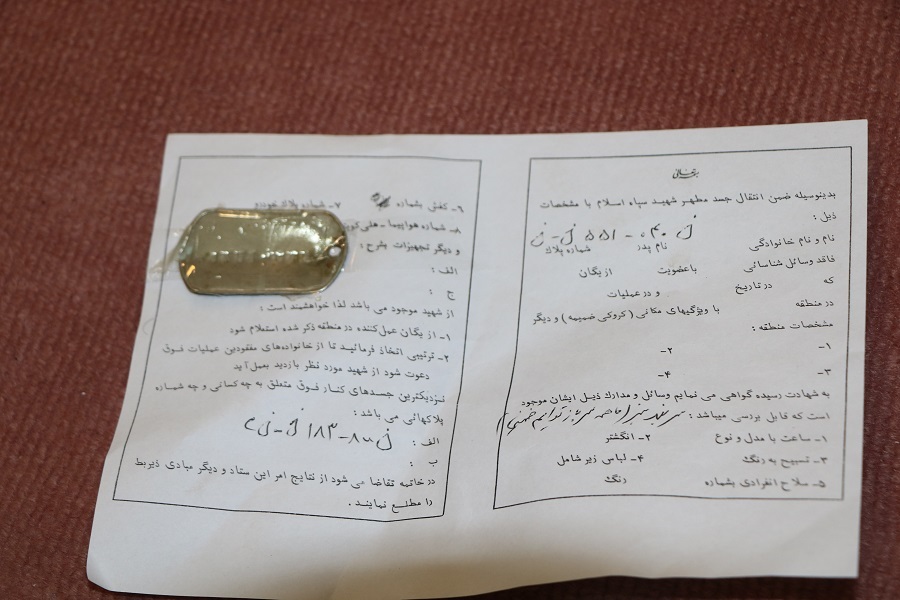 بسمه‌تعالی
بدینوسیله ضمن انتقال جسد مطهر شهید سپاه اسلام با مشخصات
ذیل :
نام و نام خانوادگی نام پدر شماره پلاک
فاقد وسائل شناسائی باعضویت ازیگان
که در تاریخ و در عملیات
در منطقه با ویژگیهای مکانی ( کروکی ضمیمه ) و دیگر
مشخصات منطقه :
۱- ۲-
۳- ۴-
به شهادت رسیده گواهی می نمایم وسائل و مدارک ذیل ایشان موجود
است که قابل بررسی میباشد :
۱- ساعت با مدل و نوع ۲- انگشتر
۳- تسبیح به رنگ ۴- لباس زیر شامل
۵- سلاح انفرادی بشماره رنگ
۶- کفش بشماره ۷- شماره پلاک خودرو
۸- شماره هواپیما - هلی
و دیگر تجهیزات بشرح :
الف :
ج :
از شهید موجود می باشد لذا خواهشمند است :
۱- از یگان عمل‌کننده در منطقه ذکر شده استعلام شود
۲- ترتیبی اتخاذ فرمائید تا از خانواده‌های مفقودین عملیات فوق
دعوت شود از شهید مورد نظر بازدید بعمل آید
نزدیکترین جسدهای کنار فوق متعلق به چه کسانی و چه شماره
پلاکهائی می باشد :
الف :
ب :
در خاتمه تقاضا می شود از نتایج امر این ستاد و دیگر مبادی ذیربط
را مطلع نمایند .